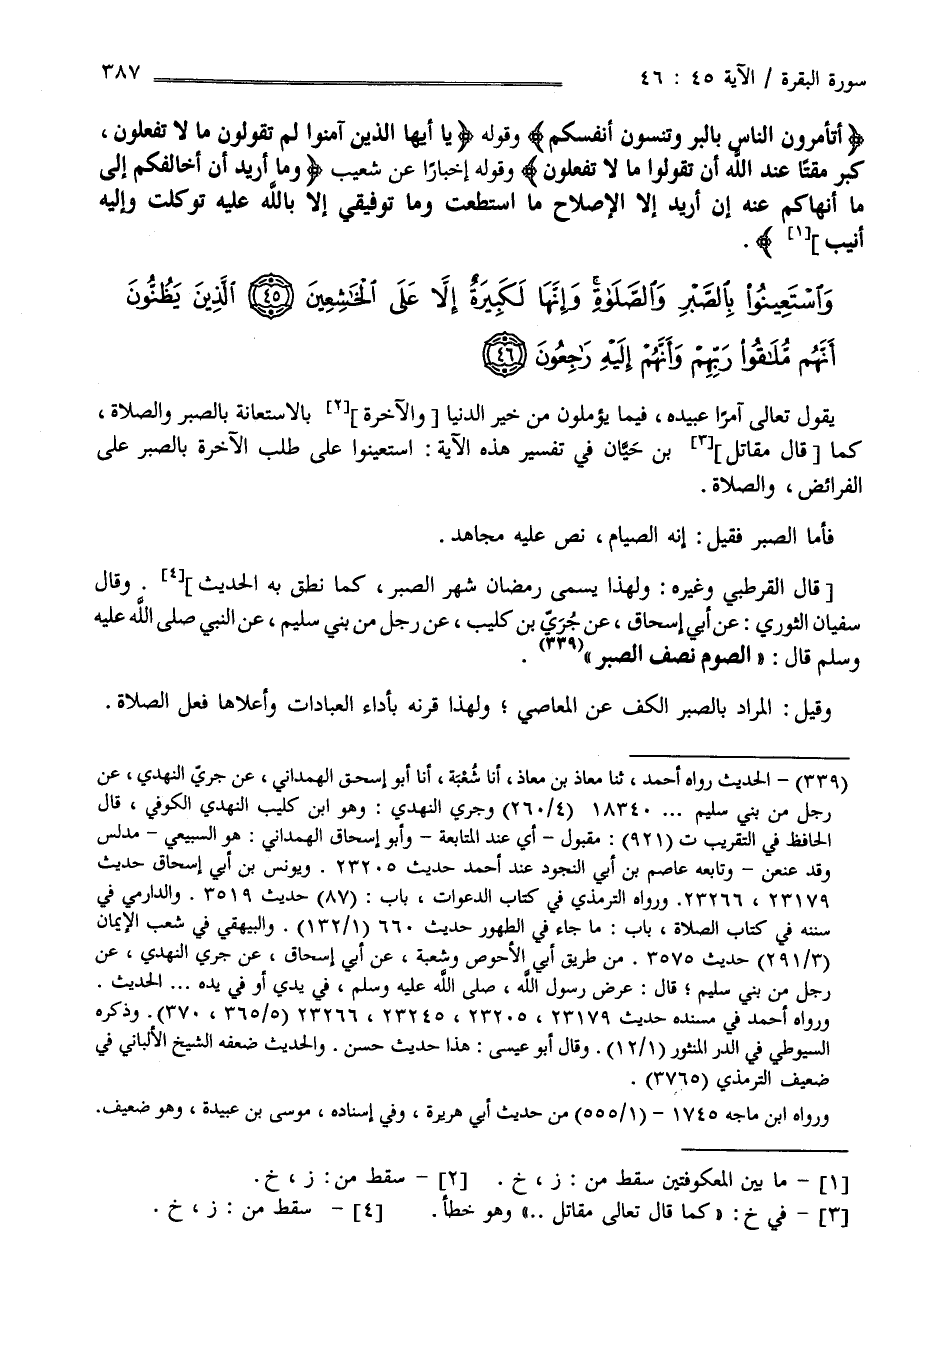 سورة البقرة / الآية ٤٥ : ٤٦ ٣٨٧
﴿ أتأمرون الناس بالبر وتنسون أنفسكم ﴾ وقوله ﴿ يا أيها الذين آمنوا لم تقولون ما لا تفعلون ،
كبر مقتًا عند الله أن تقولوا ما لا تفعلون ﴾ وقوله إخبارًا عن شعيب ﴿ وما أريد أن أخالفكم إلى
ما أنهاكم عنه إن أريد إلا الإصلاح ما استطعت وما توفيقي إلا بالله عليه توكلت وإليه
أنيب ][١] ﴾ .
وَٱسْتَعِينُوا۟ بِٱلصَّبْرِ وَٱلصَّلَوٰةِۚ وَإِنَّهَا لَكَبِيرَةٌ إِلَّا عَلَى ٱلْخَٰشِعِينَ ﴿٤٥﴾ ٱلَّذِينَ يَظُنُّونَ
أَنَّهُم مُّلَٰقُوا۟ رَبِّهِمْ وَأَنَّهُمْ إِلَيْهِ رَٰجِعُونَ ﴿٤٦﴾
يقول تعالى آمرًا عبيده ، فيما يؤملون من خير الدنيا [ والآخرة ][٢] بالاستعانة بالصبر والصلاة ،
كما [ قال مقاتل ][٣] بن حَيَّان في تفسير هذه الآية : استعينوا على طلب الآخرة بالصبر على
الفرائض ، والصلاة .
فأما الصبر فقيل : إنه الصيام ، نص عليه مجاهد .
[ قال القرطبي وغيره : ولهذا يسمى رمضان شهر الصبر ، كما نطق به الحديث ][٤] . وقال
سفيان الثوري : عن أبي إسحاق ، عن جُرَيّ بن كليب ، عن رجل من بني سليم ، عن النبي صلى الله عليه
وسلم قال : « الصوم نصف الصبر »(٣٣٩) .
وقيل : المراد بالصبر الكف عن المعاصي ؛ ولهذا قرنه بأداء العبادات وأعلاها فعل الصلاة .
(٣٣٩) - الحديث رواه أحمد ، ثنا معاذ بن معاذ ، أنا شُعْبَة ، أنا أبو إسحق الهمداني ، عن جريّ النهدي ، عن
رجل من بني سليم ... ١٨٣٤٠ (٢٦٠/٤) وجري النهدي : وهو ابن كليب النهدي الكوفي ، قال
الحافظ في التقريب ت (٩٢١) : مقبول - أي عند المتابعة - وأبو إسحاق الهمداني : هو السبيعي - مدلس
وقد عنعن - وتابعه عاصم بن أبي النجود عند أحمد حديث ٢٣٢٠٥ . ويونس بن أبي إسحاق حديث
٢٣١٧٩ ، ٢٣٢٦٦. ورواه الترمذي في كتاب الدعوات ، باب : (٨٧) حديث ٣٥١٩ . والدارمي في
سننه في كتاب الصلاة ، باب : ما جاء في الطهور حديث ٦٦٠ (١٣٢/١) . والبيهقي في شعب الإيمان
(٢٩١/٣) حديث ٣٥٧٥ . من طريق أبي الأحوص وشعبة ، عن أبي إسحاق ، عن جري النهدي ، عن
رجل من بني سليم ؛ قال : عرض رسول الله ، صلى الله عليه وسلم ، في يدي أو في يده ... الحديث .
ورواه أحمد في مسنده حديث ٢٣١٧٩ ، ٢٣٢٠٥ ، ٢٣٢٤٥ ، ٢٣٢٦٦ (٣٦٥/٥ ، ٣٧٠). وذكره
السيوطي في الدر المنثور (١٢/١) . وقال أبو عيسى : هذا حديث حسن . والحديث ضعفه الشيخ الألباني في
ضعيف الترمذي (٣٧٦٥) .
ورواه ابن ماجه ١٧٤٥ - (٥٥٥/١) من حديث أبي هريرة ، وفي إسناده ، موسى بن عبيدة ، وهو ضعيف.
[١] - ما بين المعكوفتين سقط من : ز ، خ . [٢] - سقط من : ز ، خ.
[٣] - في خ : « كما قال تعالى مقاتل ..» وهو خطأ. [٤] - سقط من : ز ، خ .